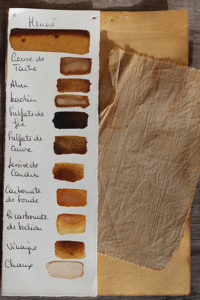 Henné
Crème de
Tartre
Alun
kaolin
Sulfate de
fer
Sulfate de
cuivre
Cendre
Carbonate
de soude
Bicarbonate
de sodium
Vinaigre
Chaux